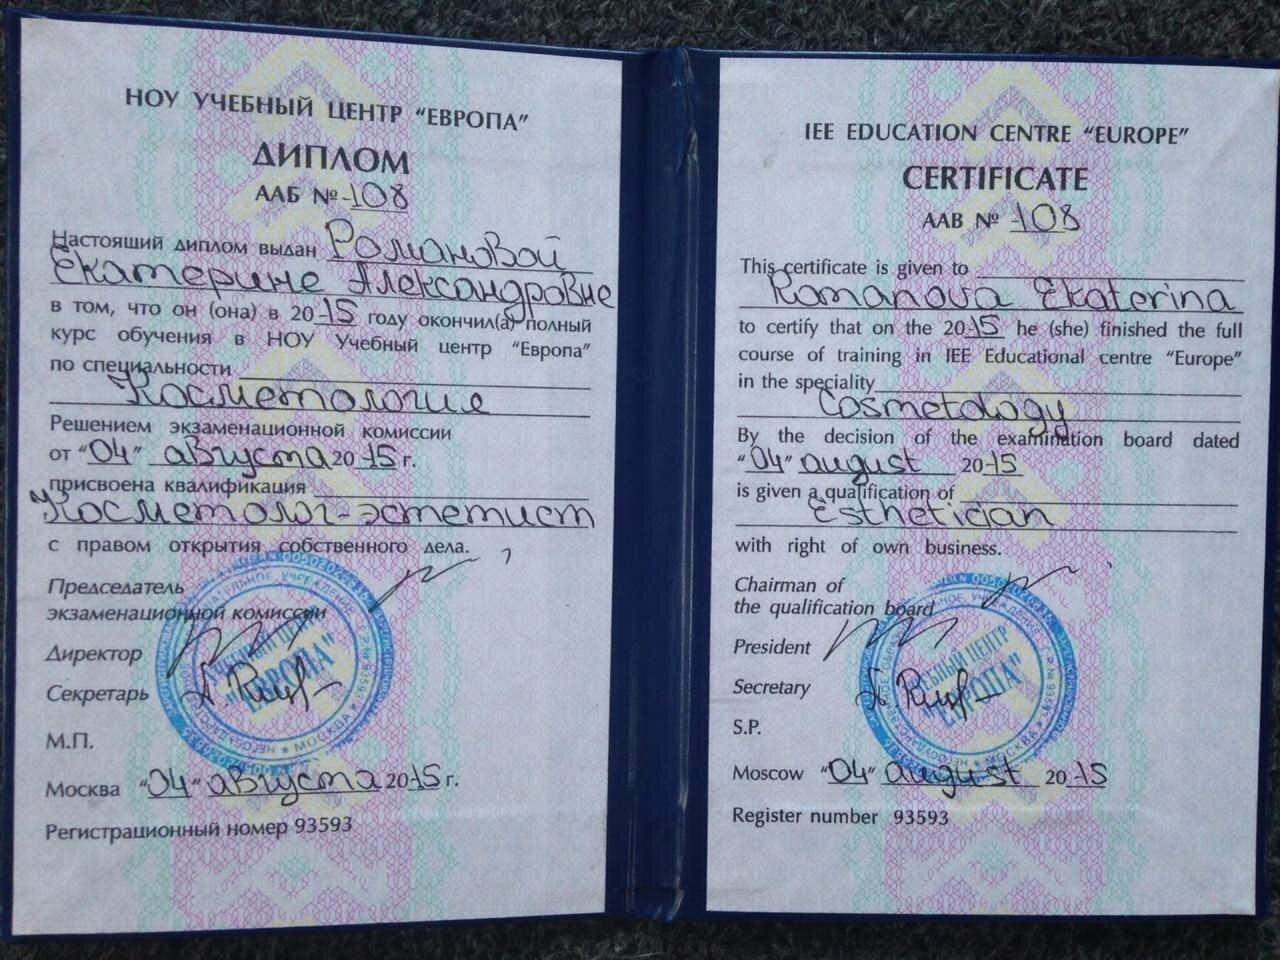 НОУ УЧЕБНЫЙ ЦЕНТР "ЕВРОПА"
ДИПЛОМ
ААБ № 108
Настоящий диплом выдан Романовой
Екатерине Александровне
в том, что он (она) в 2015 году окончил(а) полный
курс обучения в НОУ Учебный центр "Европа"
по специальности
Косметология
Решением экзаменационной комиссии
от "04" августа 2015 г.
присвоена квалификация
Косметолог-эстетист
с правом открытия собственного дела.
Председатель
экзаменационной комиссии
Директор
Секретарь
М.П.
Москва "04" августа 2015 г.
Регистрационный номер 93593
УЧЕБНЫЙ ЦЕНТР
"ЕВРОПА"
МОСКВА
IEE EDUCATION CENTRE "EUROPE"
CERTIFICATE
AAB № 108
This certificate is given to
Romanova Ekaterina
to certify that on the 2015 he (she) finished the full
course of training in IEE Educational centre "Europe"
in the speciality
Cosmetology
By the decision of the examination board dated
"04" august 2015
is given a qualification of
Esthetician
with right of own business.
Chairman of
the qualification board
President
Secretary
S.P.
Moscow "04" august 2015
Register number 93593
УЧЕБНЫЙ ЦЕНТР
"ЕВРОПА"
МОСКВА